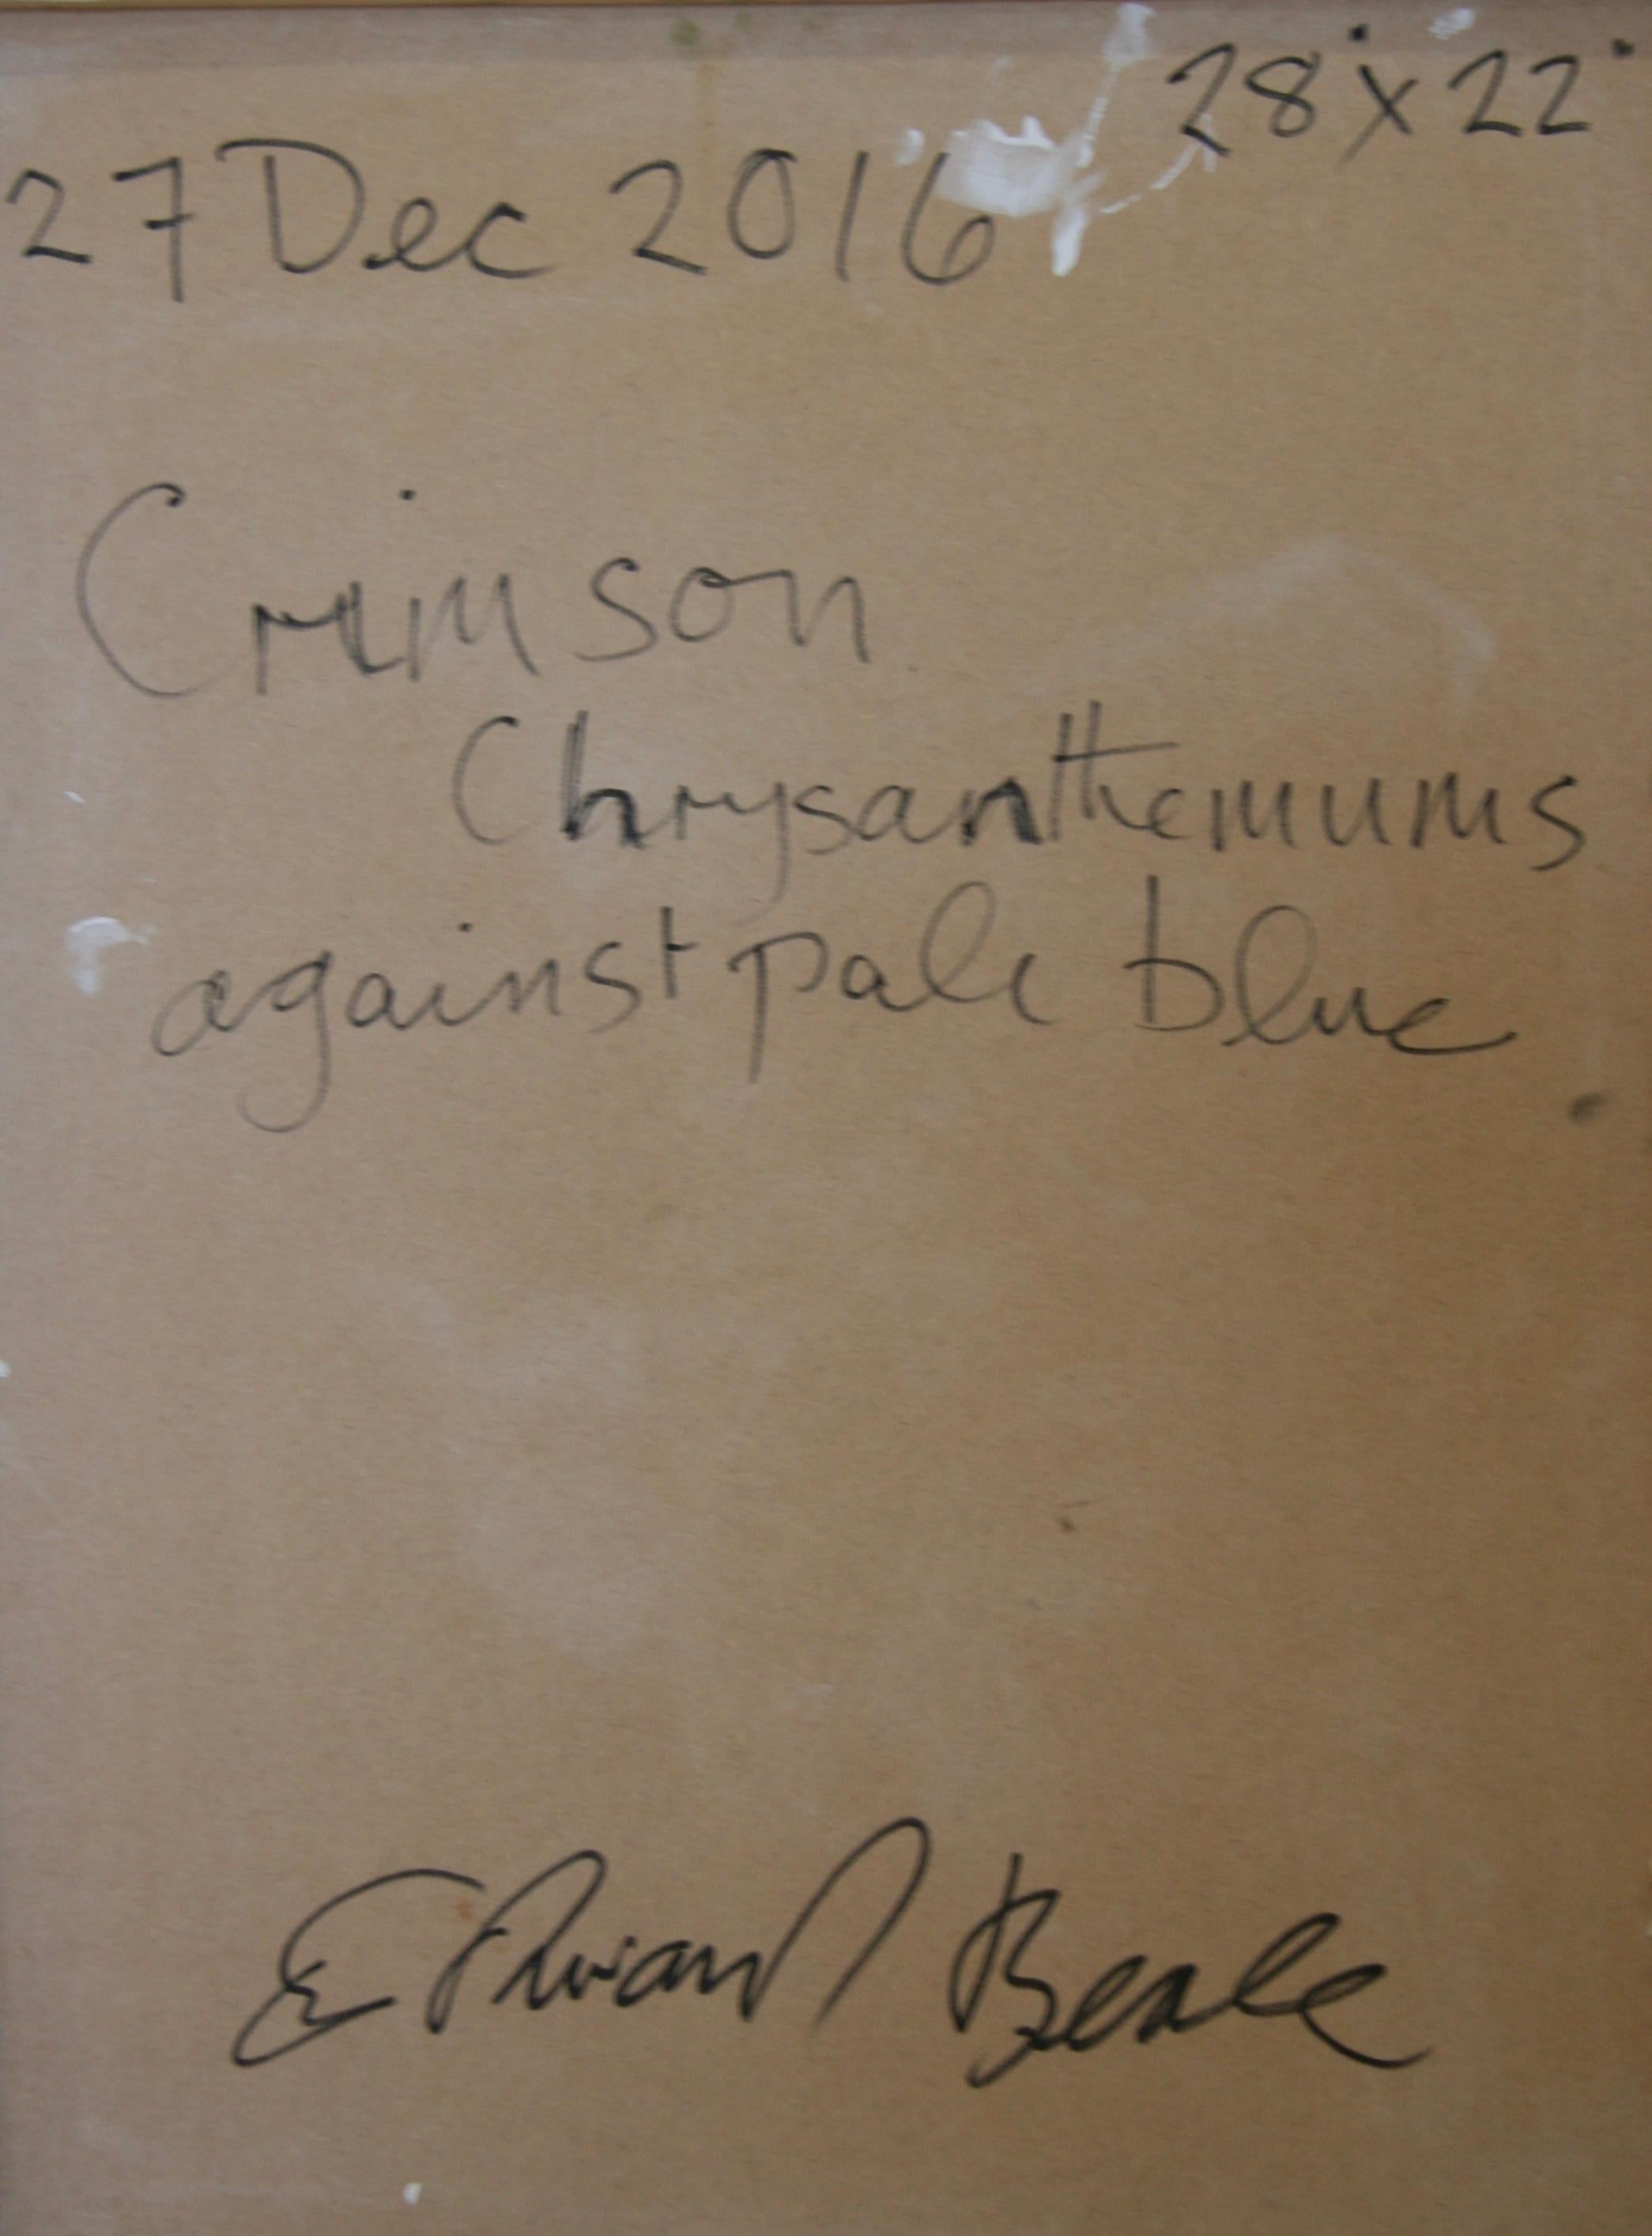 28" x 22"
27 Dec 2016
Crimson
Chrysanthemums
against pale blue
Edward Beale